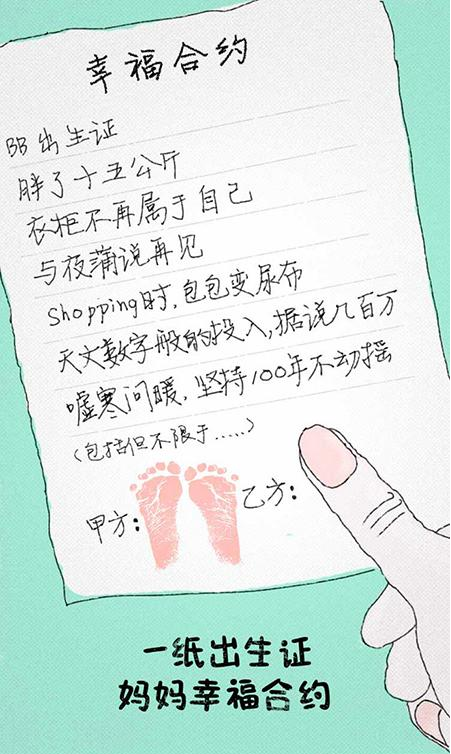 幸福合约
BB出生证
胖了十五公斤
衣柜不再属于自己
与夜蒲说再见
shopping时,包包变尿布
天文数字般的投入,据说几百万
嘘寒问暖,坚持100年不动摇
(包括但不限于.....)
甲方: 乙方:
一纸出生证
妈妈幸福合约